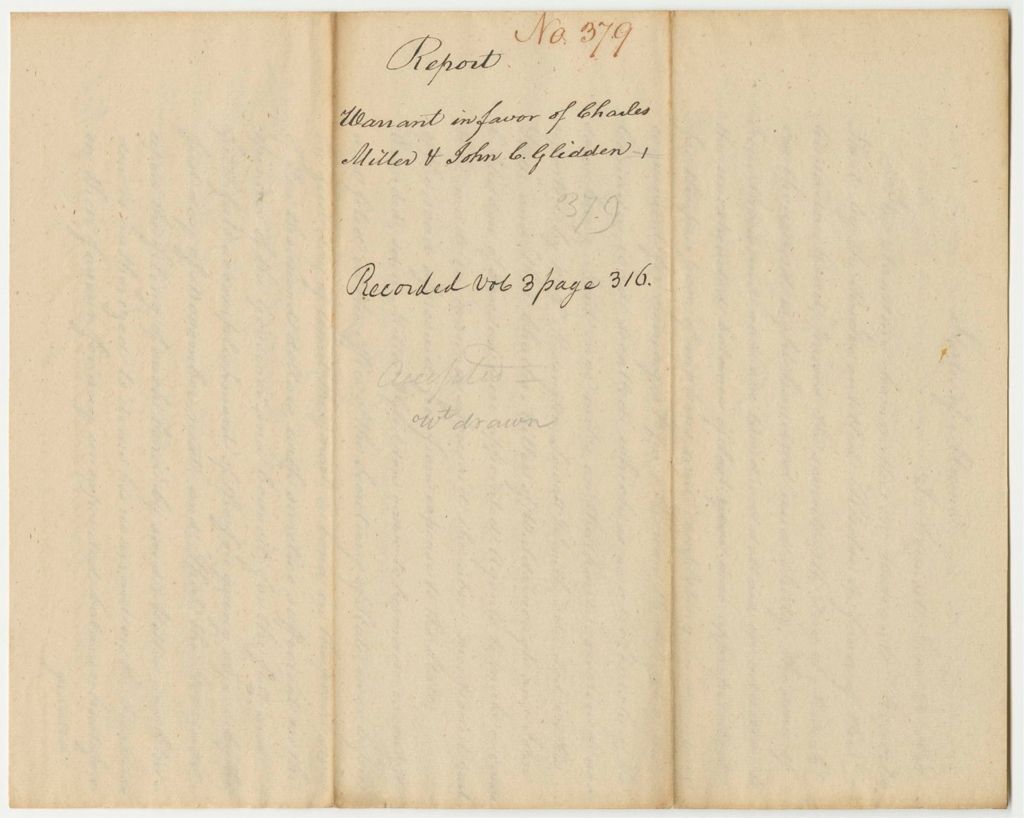 No. 379
Report
Warrant in favor of Charles
Miller & John C. Glidden,
379
Recorded Vol 3 page 316.
Accepted
Wt drawn